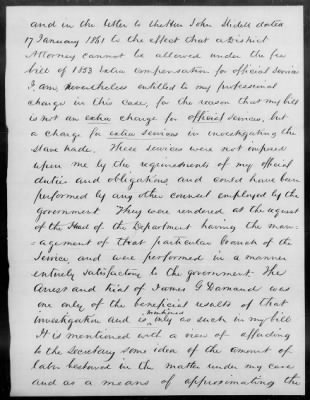 and in the letter to the Hon John Slidell dated
17 January 1861 to the effect that a District
Attorney cannot be allowed under the fee
bill of 1853 extra compensation for official services
I am nevertheless entitled to my professional
charge in this case, for the reason that my bill
is not an extra charge for official services, but
a charge for extra services in investigating the
slave trade. These services were not imposed
upon me by the requirements of my official
duties and obligations and could have been
performed by any other counsel employed by the
Government. They were rendered at the request
of the Head of the Department having the man-
=agement of that particular branch of the
Service and were performed in a manner
entirely satisfactory to the government. The
Arrest and trial of James G Darnaud was
one only of the beneficial results of that
investigation and is mentioned only as such in my bill
It is mentioned with a view of affording
to the Secretary some idea of the amount of
labor bestowed in the matter under my care
and as a means of approximating the